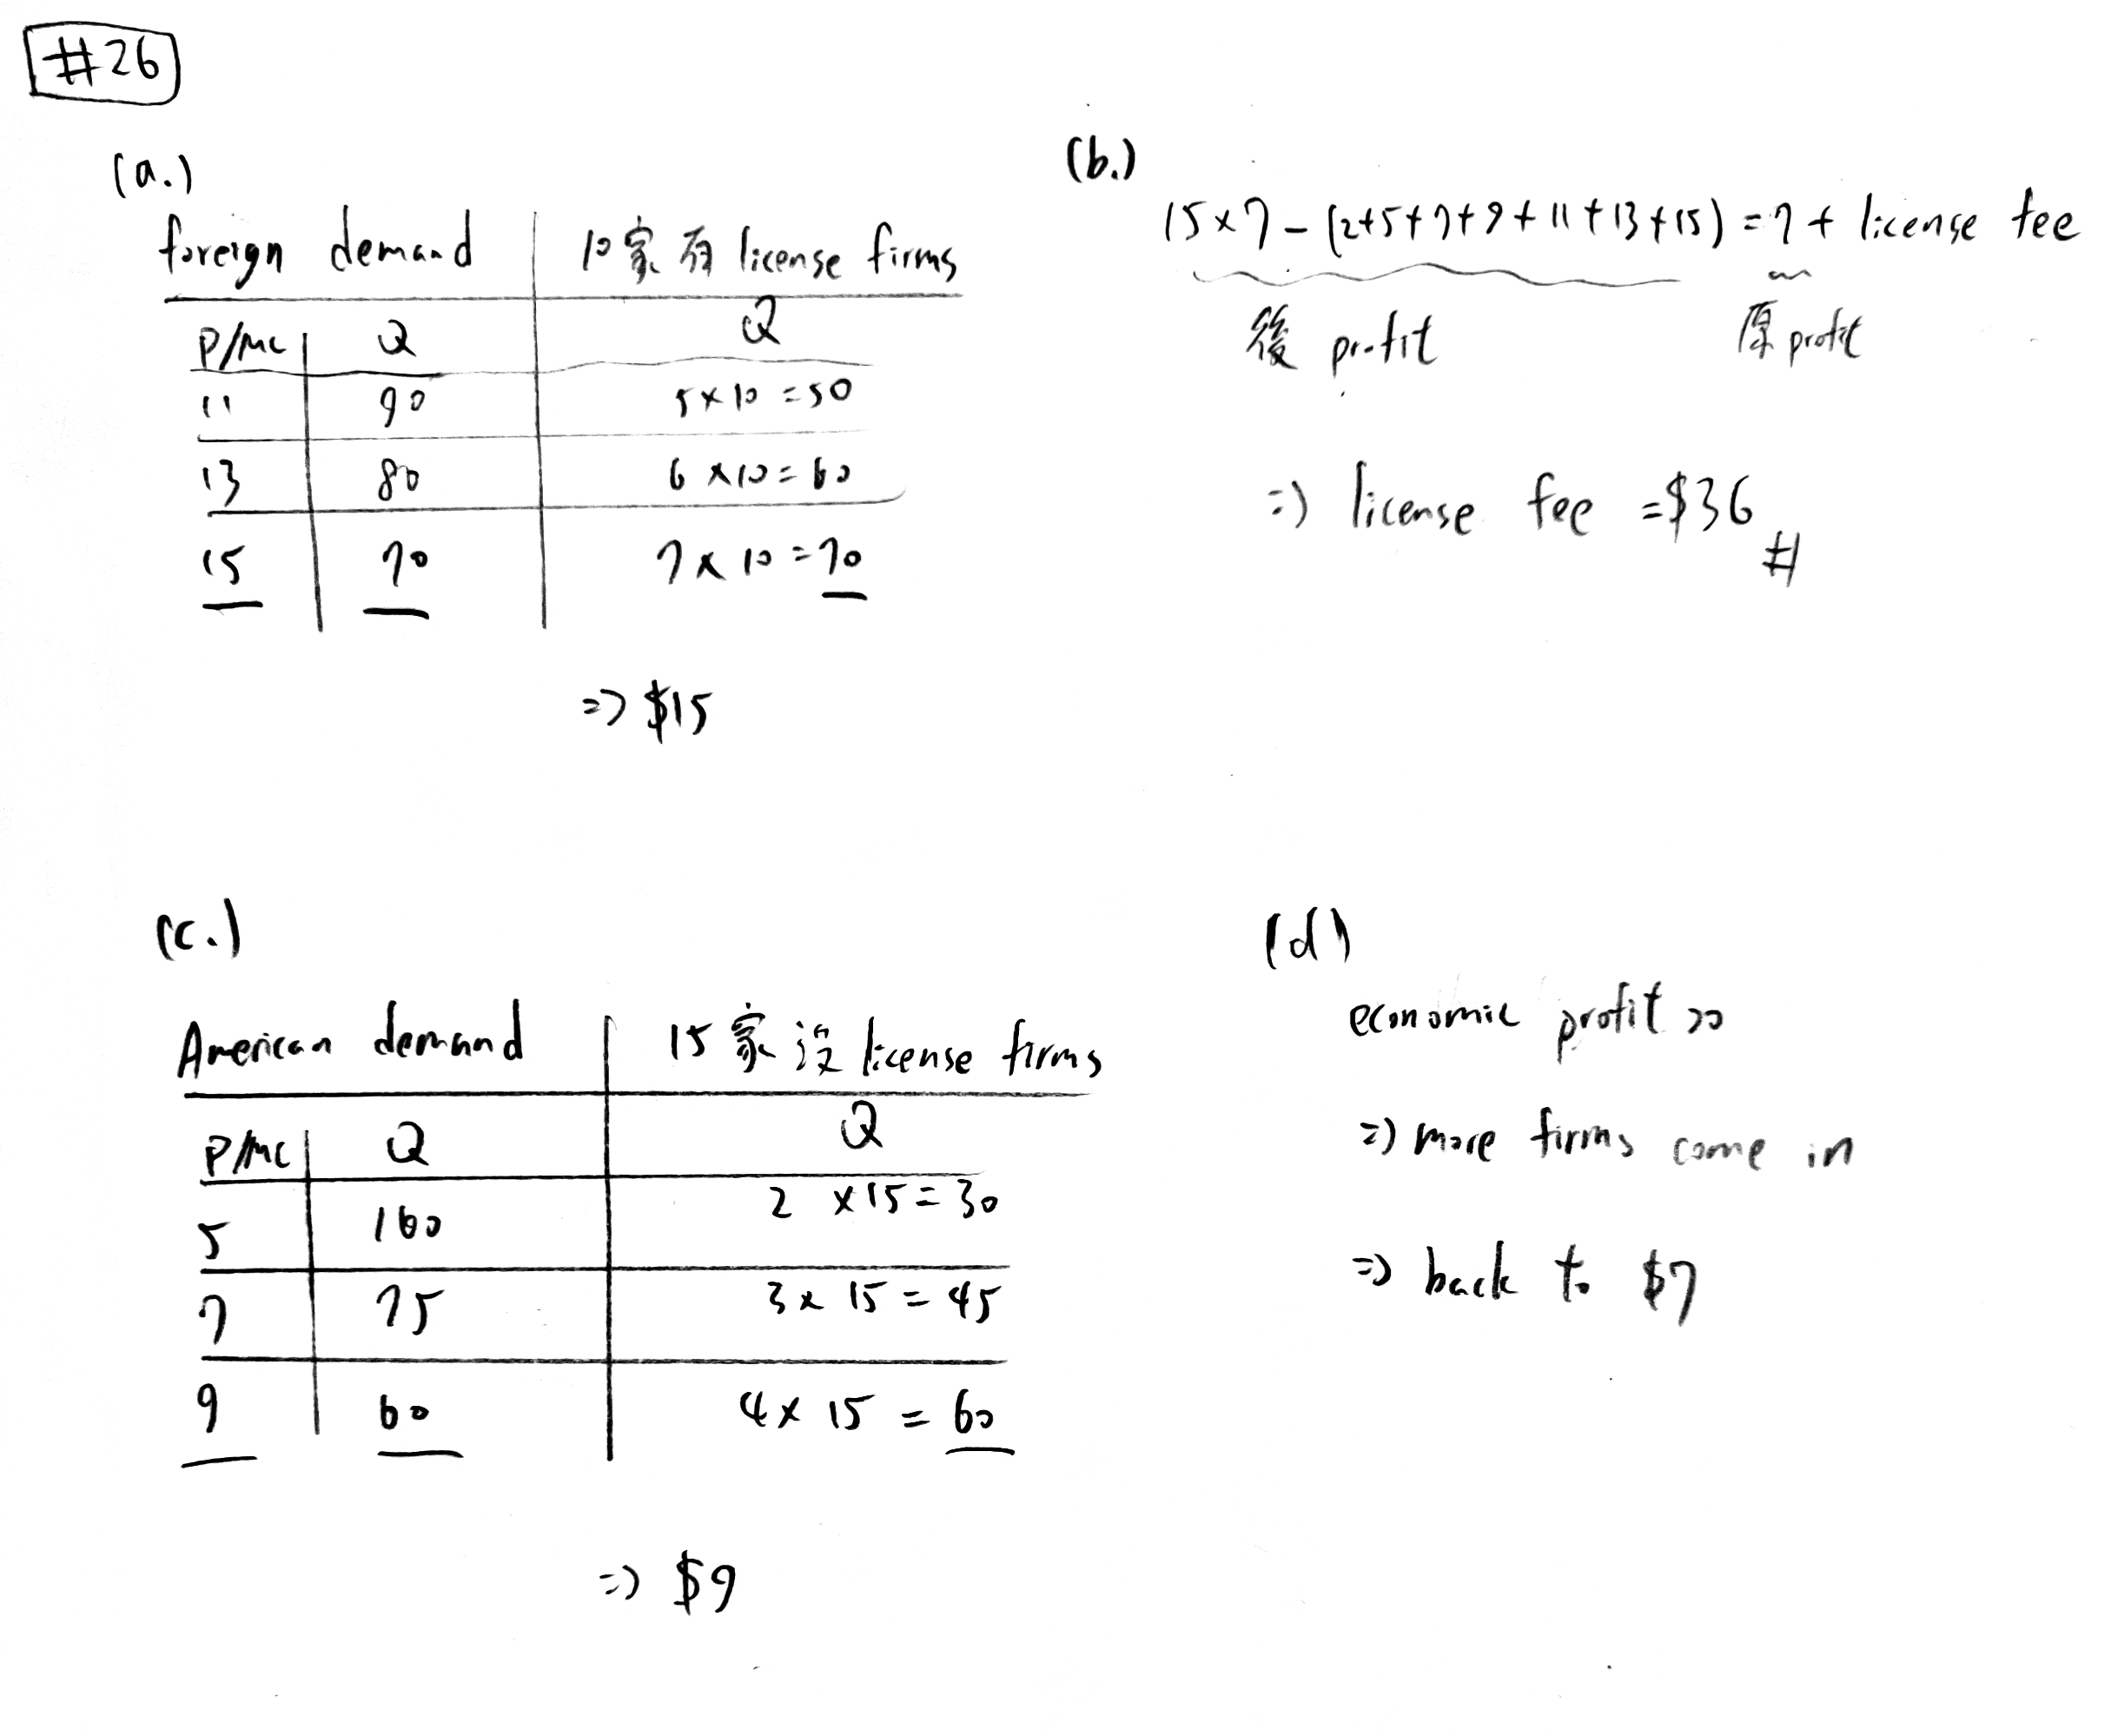 #26
(a.)
foreign demand 10家有 license firms
P/MC Q Q
11 90 5×10=50
13 80 6×10=60
15 70 7×10=70
=> $15
(b.)
15×7-(2+5+7+9+11+13+15)=7+ license fee
後 profit 原 profit
=> license fee =$36 #
(c.)
American demand 15家沒 license firms
P/MC Q Q
5 100 2×15=30
7 75 3×15=45
9 60 4×15=60
=> $9
(d)
economic profit >0
=> more firms come in
=> back to $7